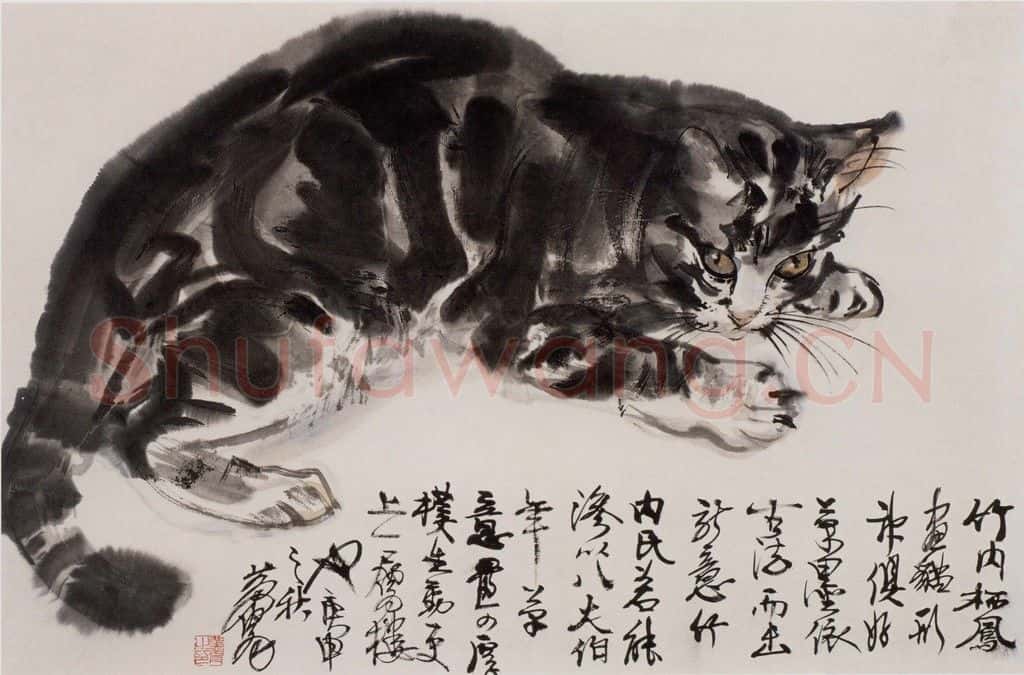 竹内栖鳳
畫貓形
神俱好
筆墨依
古法而出
新意竹
内氏若能
滲以八大伯
年筆
意厚
樸生動更
上一層樓
也庚申
之秋
Shufawang.CN